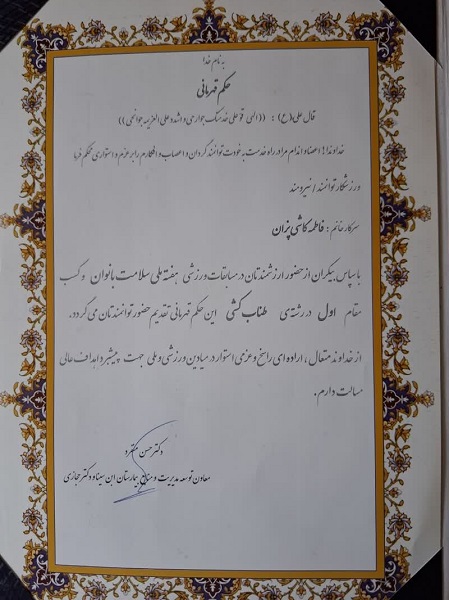 به نام خدا
حکم قهرمانی
قال علی (ع) : ((الهی قو علی خدمتک جوارحی و اشدد علی العزیمه جوانحی))
خداوندا! اعضاء و اندام مرا در راه خدمت به خودت توانمند گردان و اعصاب و افکارم را بر عزم و استواری محکم فرما
ورزشکار توانمند / نیرومند
سرکار خانم : فاطمه کاشی پزان
با سپاس بیکران از حضور ارزشمندتان در مسابقات ورزشی هفته ملی سلامت بانوان و کسب
مقام اول در رشته ی طناب کشی این حکم قهرمانی تقدیم حضور توانمندتان می گردد.
از خداوند متعال ، اراده ای راسخ و عزمی استوار در میادین ورزشی و ملی جهت پیشبرد اهداف عالی
مسالت دارم .
دکتر حسن
معاون توسعه مدیریت و منابع بیمارستان ابن سینا و دکتر حجازی